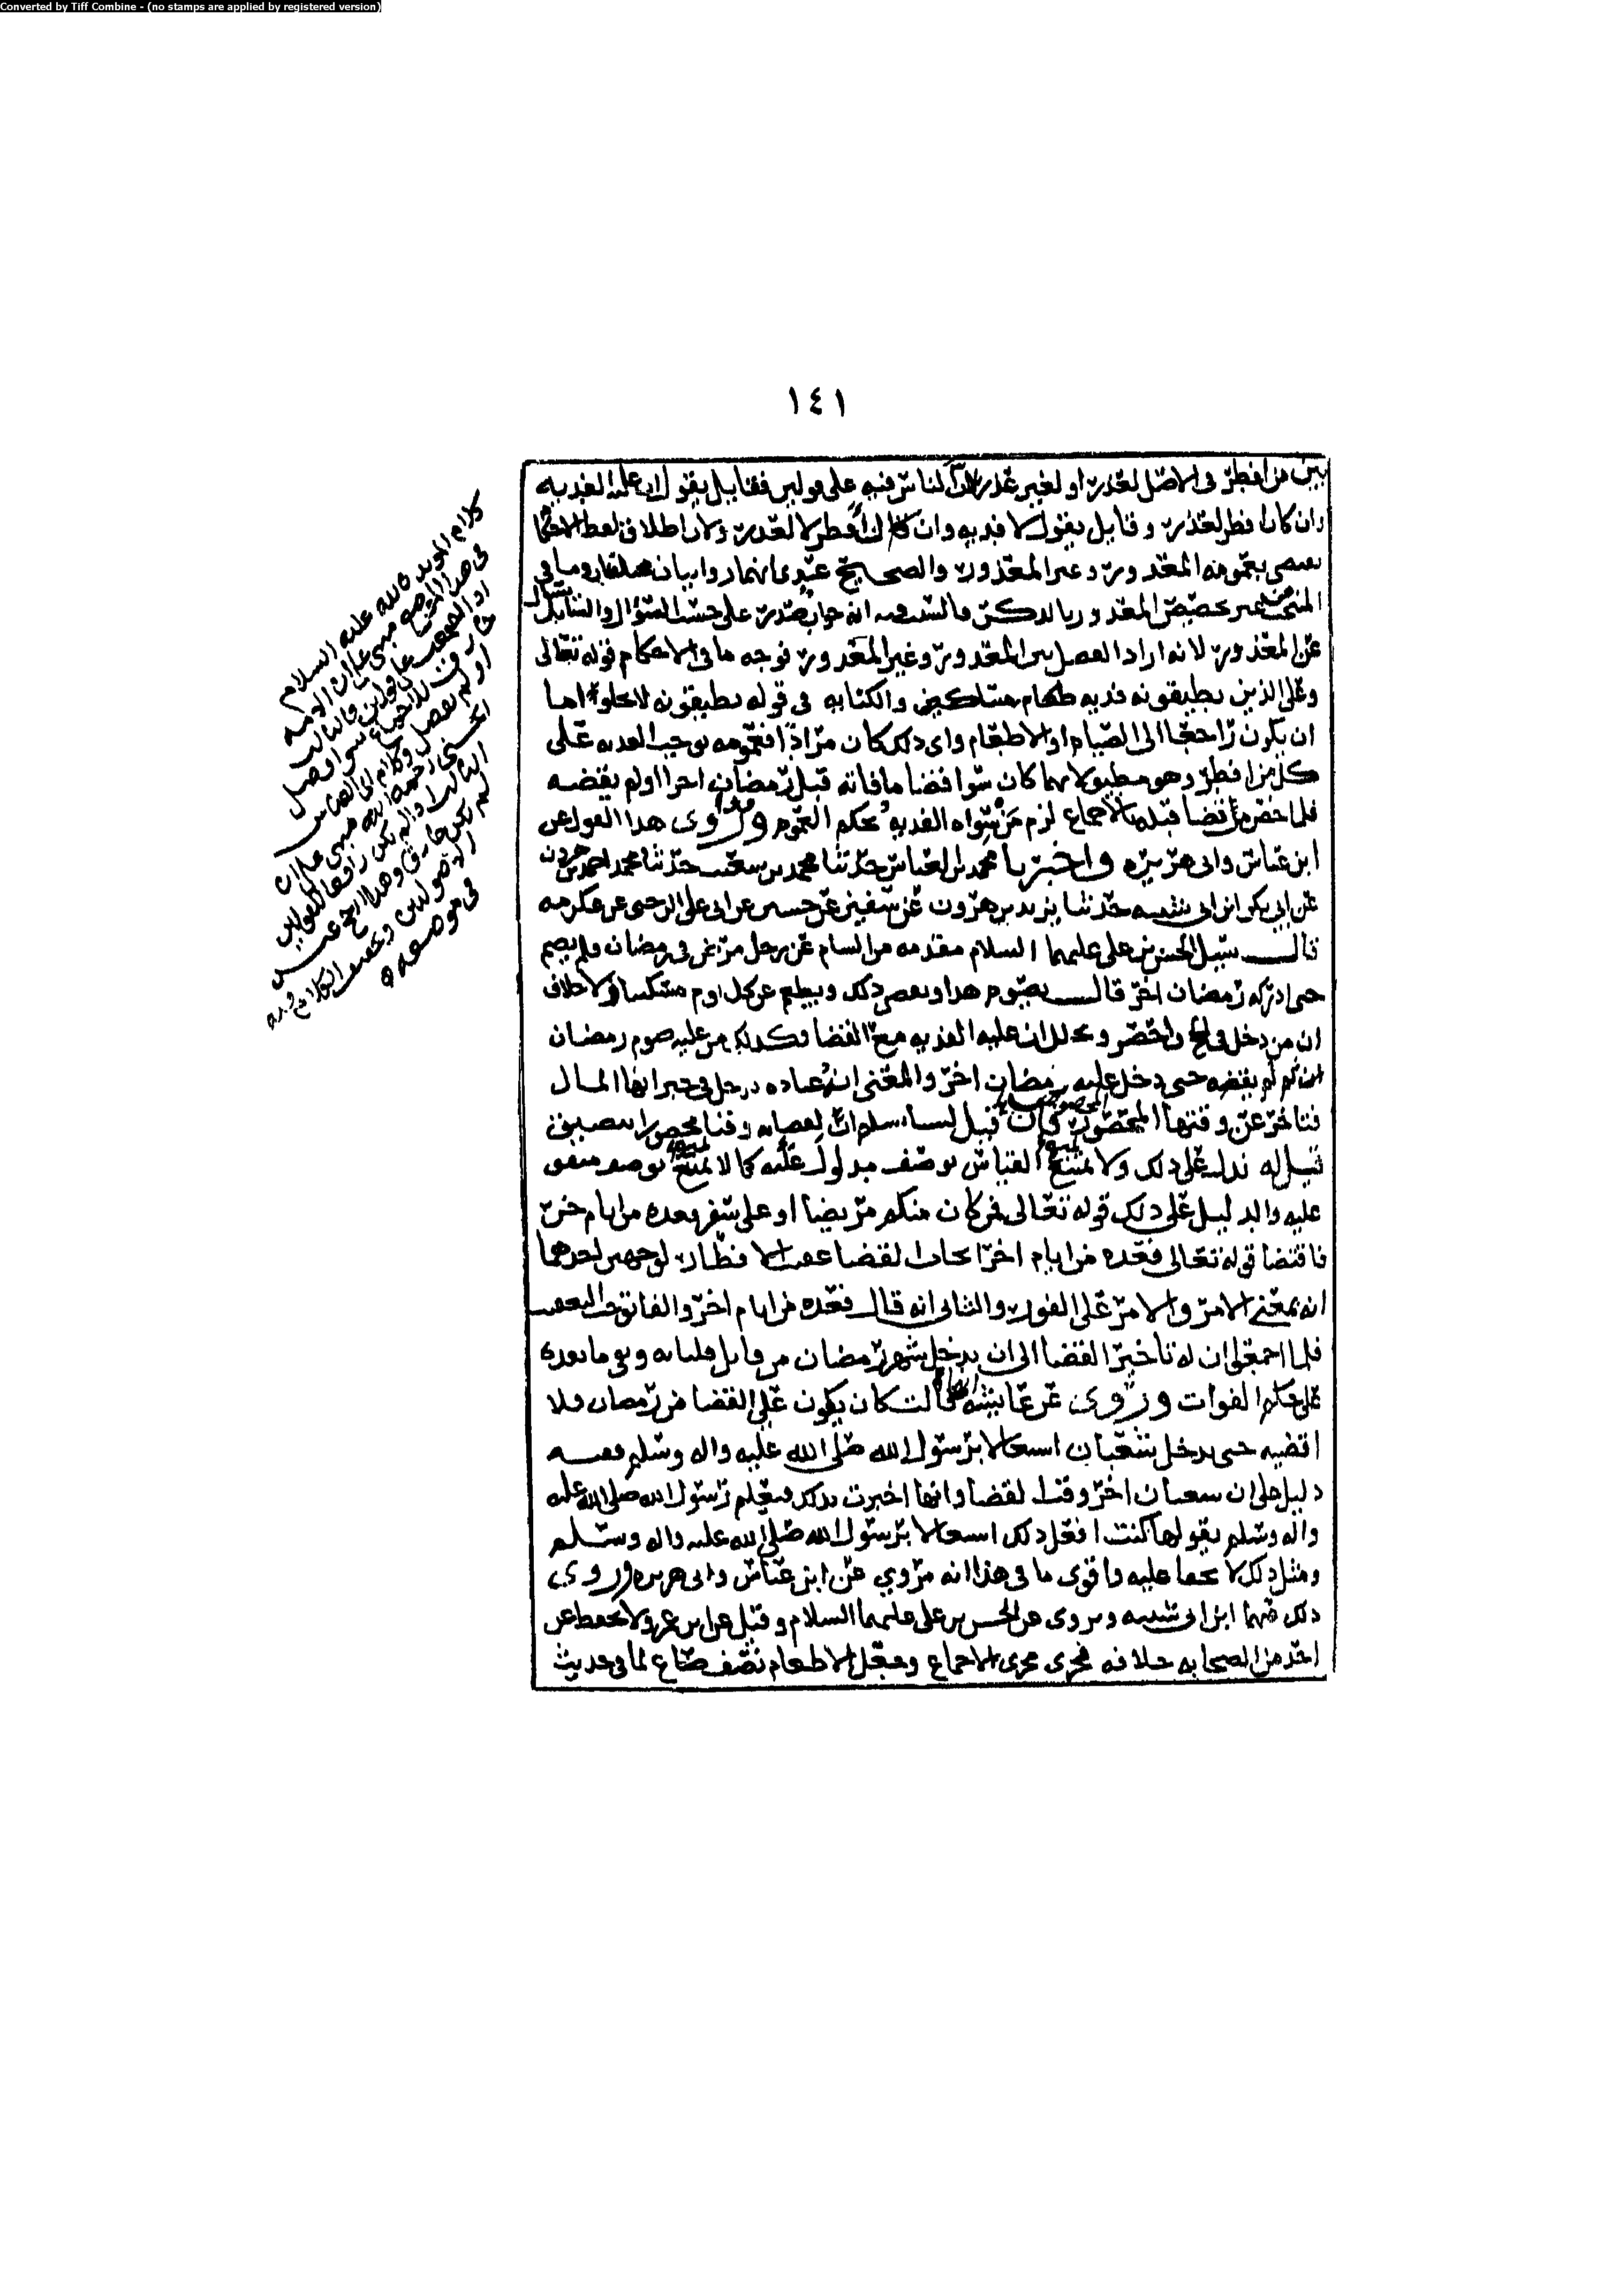 Converted by Tiff Combine - (no stamps are applied by registered version)
١٤١
بين من افطر في الاصل لعذر او لغير عذر لان الناس فيه على قولين فقايل يقول ان عليه الفديه
وان كان افطر لعذر وقايل يقول لا فديه وان كان افطر لا لعذر ولان اطلاق لفظ الاحكام
يقتضي بعمومه المعذور وغير المعذور والصحيح عندي انهما روايتان مختلفتان وما في
المنتخب من تخصيص المعذور بالذكر
عن المعذور لانه اراد الفصل بين المعذور وغير المعذور فوجه ما في الاحكام قوله تعالى
وعلى الذين يطيقونه فديه طعام مساكين والكنايه في قوله يطيقونه لا تخلو اما
ان يكون راجعا الى الصيام او الاطعام واي ذلك كان مرادا فعمومه يوجب الفديه على
كل من افطر وهو مطيق لايهما كان سوا قضا ما فاته قبل رمضان اخر او لم يقضه
فلما خص من قضا قبله بالاجماع لزم من سواه الفديه بحكم العموم وروي هذا القول عن
ابن عباس وابي هريره واخبرنا محمد بن العباس حدثنا محمد بن شعيب حدثنا محمد احمد بن هرون
عن ابي بكر ابن ابي شيبه حدثنا يزيد بن هرون عن سفين عن حسين عن ابي علي الرحبي عن عكرمه
قال سئل الحسن بن علي عليهما السلام مقدمه من الشام عن رجل مرض في رمضان فلم يصم
حتى ادركه رمضان اخر قال يصوم هذا ويقضي ذلك ويطعم عن كل يوم مسكينا ولا خلاف
ان من دخل في الحج واحصر وتحلل ان عليه الفديه مع القضا وكذلك من عليه صوم رمضان
ثم لم يقضه حتى دخل عليه رمضان اخر والمعنى انه عباده دخل في جبرانها المال
فتاخر عن وقتها المحصور فان قيل لسنا نسلم ان لقضايه وقتا محصورا بتضييق
قيل له ندل على ذلك ولا يمتنع القياس بوصف مدلول عليه كما لا يمتنع بوصف متفق
عليه والدليل على ذلك قوله تعالى فمن كان منكم مريضا او على سفر فعده من ايام اخر
فاقتضا قوله تعالى فعده من ايام اخر ايجاب القضا عقيب الافطار لوجهين احدهما
انه بمعنى الامر والامر على الفور والثاني انه قال فعده من ايام اخر والفا توجب التعقيب
فلما اجمعوا ان له تاخير القضا الى ان يدخل شهر رمضان من قابل قلنا به وبقي ما بعده
على حكم الفوات وروي عن عايشه انها قالت كان يكون علي القضا من رمضان فلا
اقضيه حتى يدخل شعبان اشتغالا برسول الله صلى الله عليه واله وسلم ففيه
دليل على ان شعبان اخر وقت القضا وانها اخبرت بذلك بعلم رسول الله صلى الله عليه
واله وسلم بقولها كنت افعل ذلك اشتغالا برسول الله صلى الله عليه واله وسلم
ومثل ذلك لا يخفا عليه واقوى ما في هذا انه مروي عن ابن عباس وابي هريره وروى
ذلك عنهما ابن ابي شيبه وروي عن الحسن بن علي عليهما السلام وقيل عن ابن عمر ولا يحفظ عن
احد من الصحابه خلافه فجرى مجرى الاجماع وجعل الاطعام نصف صاع لما في حديث
كلام المويد بالله عليه السلام
في هذا الموضع مبني على ان الامه
اذا اجمعت على قولين فالثالث
خارق للاجماع سوا فصل
او لم يفصل وكلام ابي العباس
الحسني رحمه الله مبني على ان
الثالث اذا لم يكن رافعا للقولين
لم يكن خارقا وهذا
في موضعه